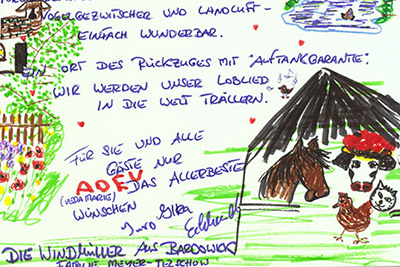 VOGELGEZWITSCHER UND LANDLUFT -
EINFACH WUNDERBAR.
EIN ORT DES RÜCKZUGES MIT "AUFTANKGARANTIE".
WIR WERDEN UNSER LOBLIED
IN DIE WELT TRÄLLERN.
FÜR SIE UND ALLE
GÄSTE NUR
DAS ALLERBESTE
WÜNSCHEN
DIE WINDMÜLLER AUS BARDOWICK
FAMILIE MEYER-TEZSCHOW